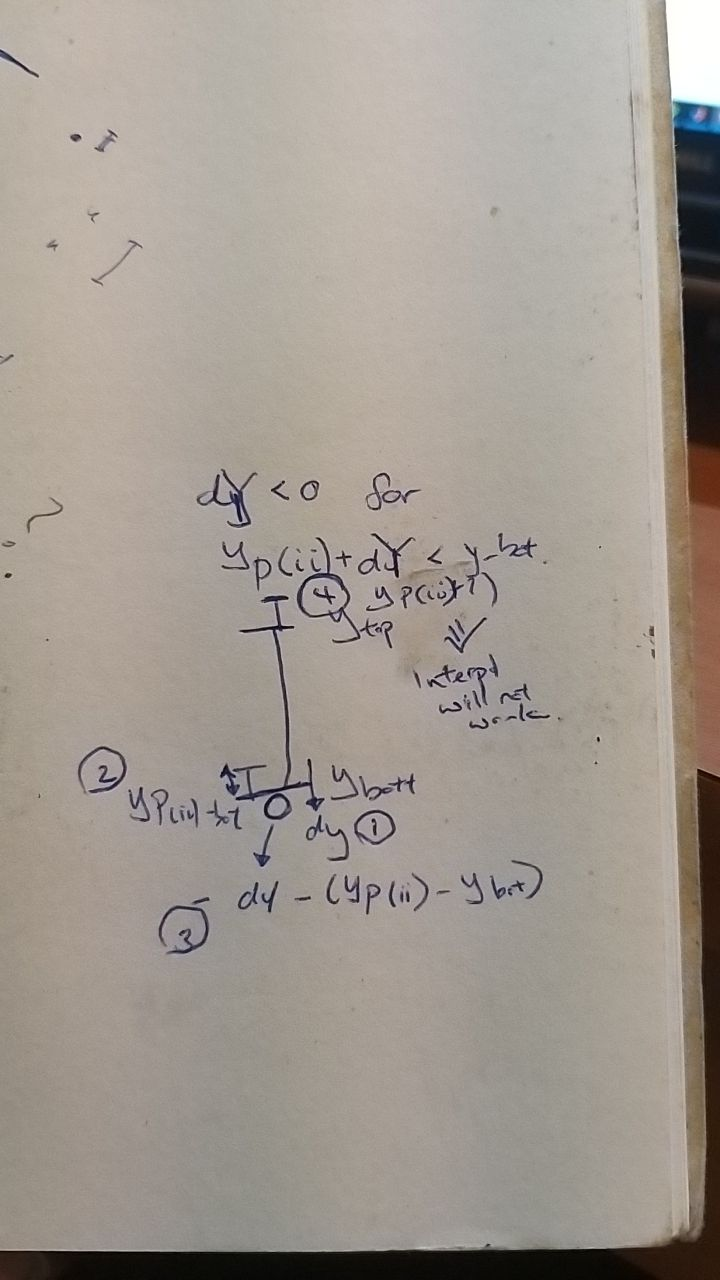 dy < 0 for
yp(ii)+dy < y-bot.
④ yp(ii)+1)
ytop
⇓
Interpd
will not
work.
②
yp(ii)-bot
ybott
dy ①
- dy - (yp(ii) - ybot)
③